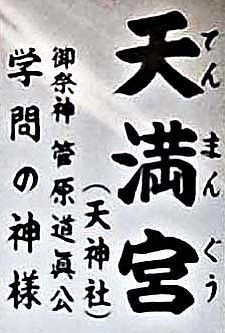 天満宮
てんまんぐう
（天神社）
御祭神 菅原道眞公
学問の神様